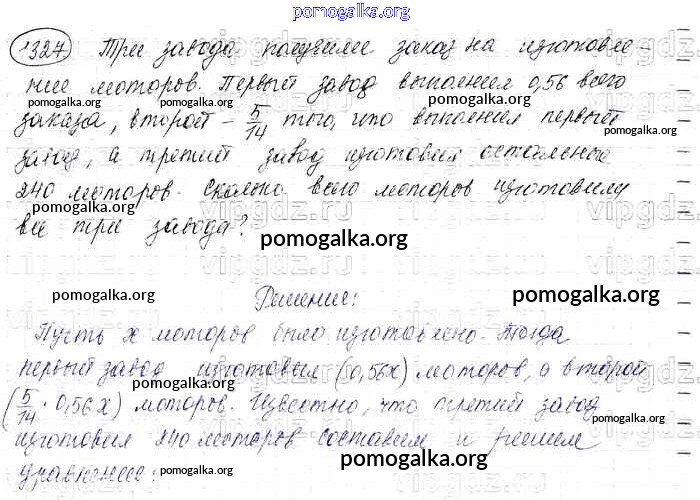 pomogalka.org
1327 Три завода получили заказ на изготовле-
ние моторов. Первый завод выполнил 0,56 всего
pomogalka.org pomogalka.org pomogalka.org
заказа, второй - 5/14 того, что выполнил первый
pomogalka.org
завод, а третий завод изготовил остальные
240 моторов. Сколько всего моторов изготовили
pomogalka.org
все три завода?
pomogalka.org
vipgdz.ru
Решение:
pomogalka.org pomogalka.org
Пусть x моторов было изготовлено. Тогда
первый завод изготовил (0,56x) моторов, а второй
pomogalka.org
(5/14 · 0,56x) моторов. Известно, что третий завод
pomogalka.org
изготовил 240 моторов составим и решим
pomogalka.org
уравнение:
pomogalka.org pomogalka.org